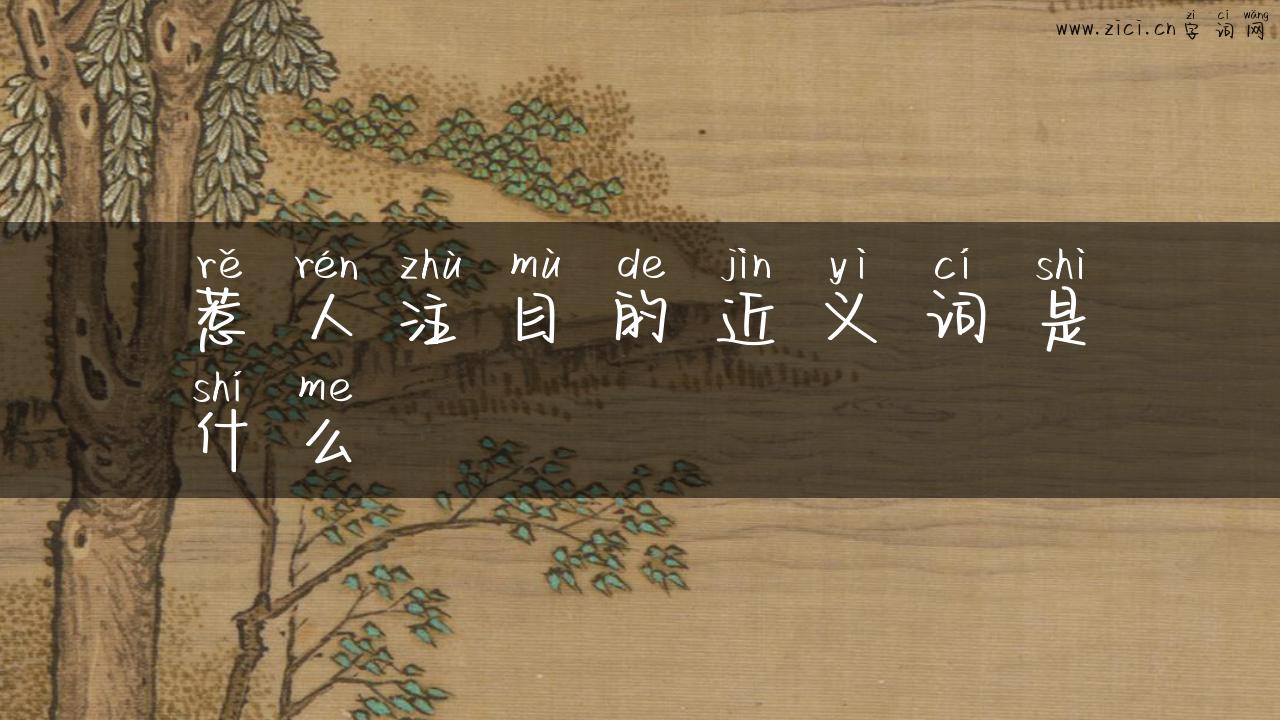 zì cí wǎng
www.zici.cn 字 词 网
rě rén zhù mù de jìn yì cí shì
惹 人 注 目 的 近 义 词 是
shí me
什 么